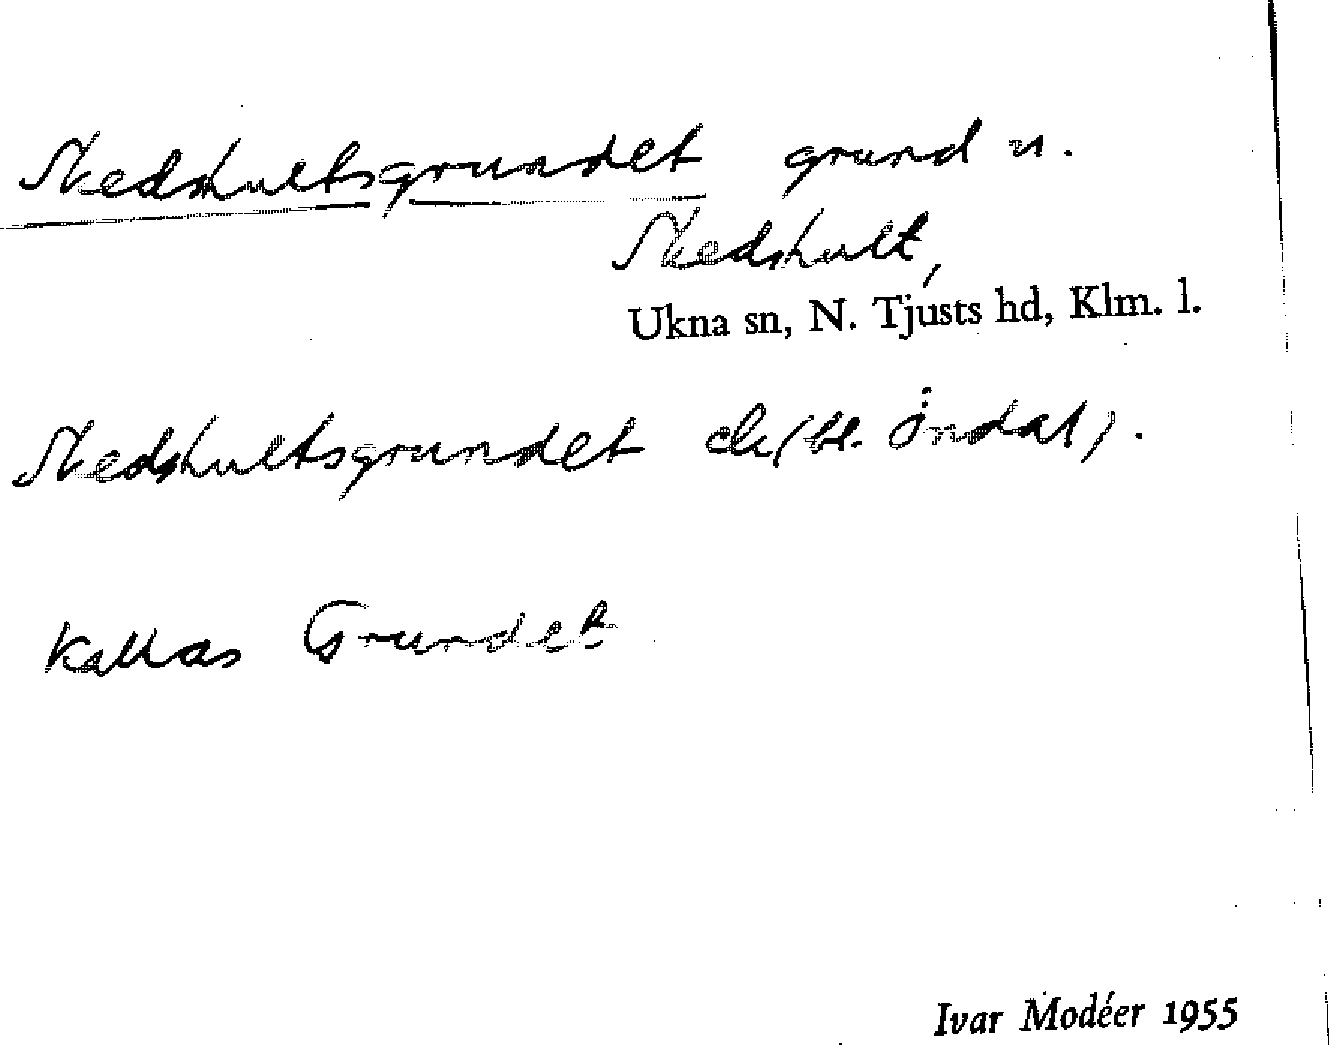 Skedshultsgrundet grund u.
Skedshult,
Ukna sn, N. Tjusts hd, Klm. l.
Skedshultsgrundet
Kallas Grundet
Ivar Modéer 1955